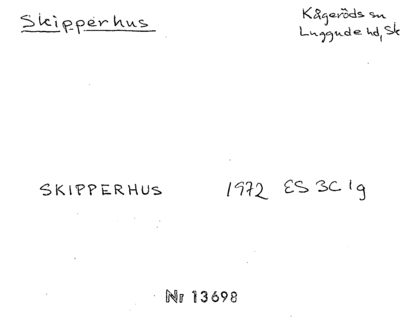 Skipperhus
Kågeröds sn
Luggude hd, Sk
SKIPPERHUS 1972 ES 3C 1g
Nr 13698